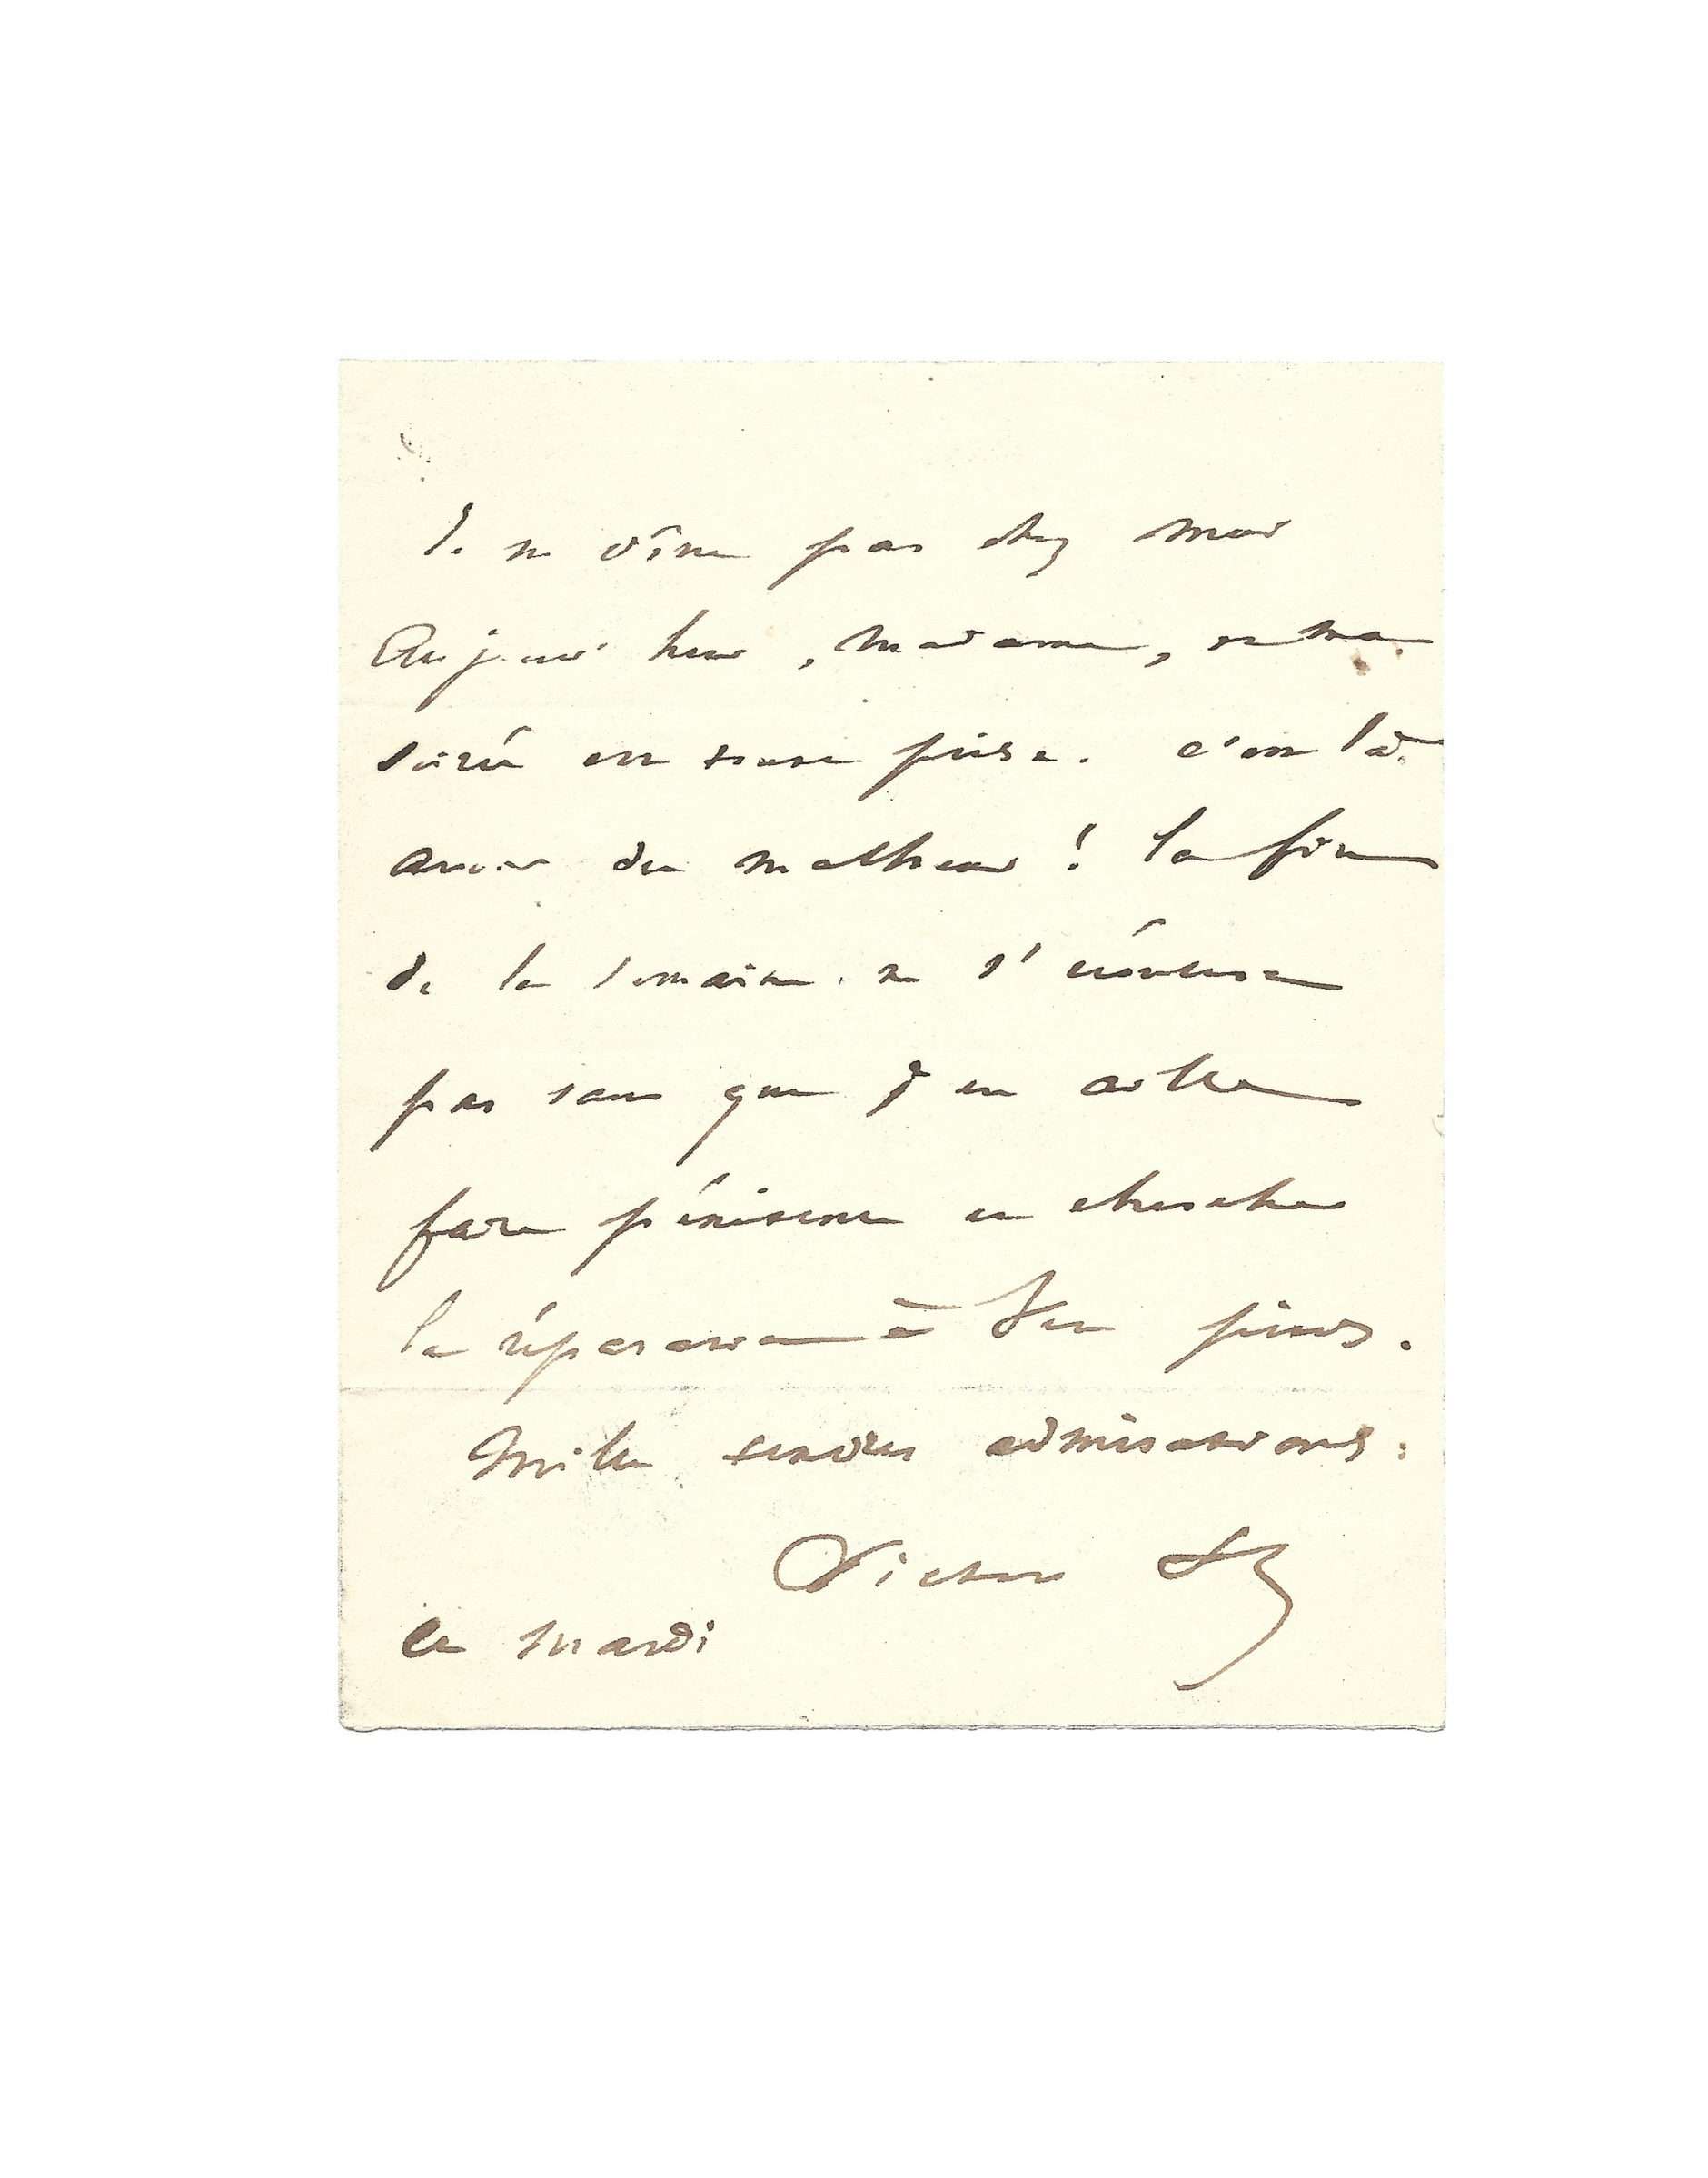 Je ne dîne pas chez moi
Aujourd'hui, Madame, et ma
soirée est toute prise. c'est là
avoir du malheur ! la fin
de la semaine ne s'écoulera
pas sans que j'en aille
faire pénitence et chercher
la réparation à vos pieds.
Mille tendres admirations.
Victor H
Ce mardi